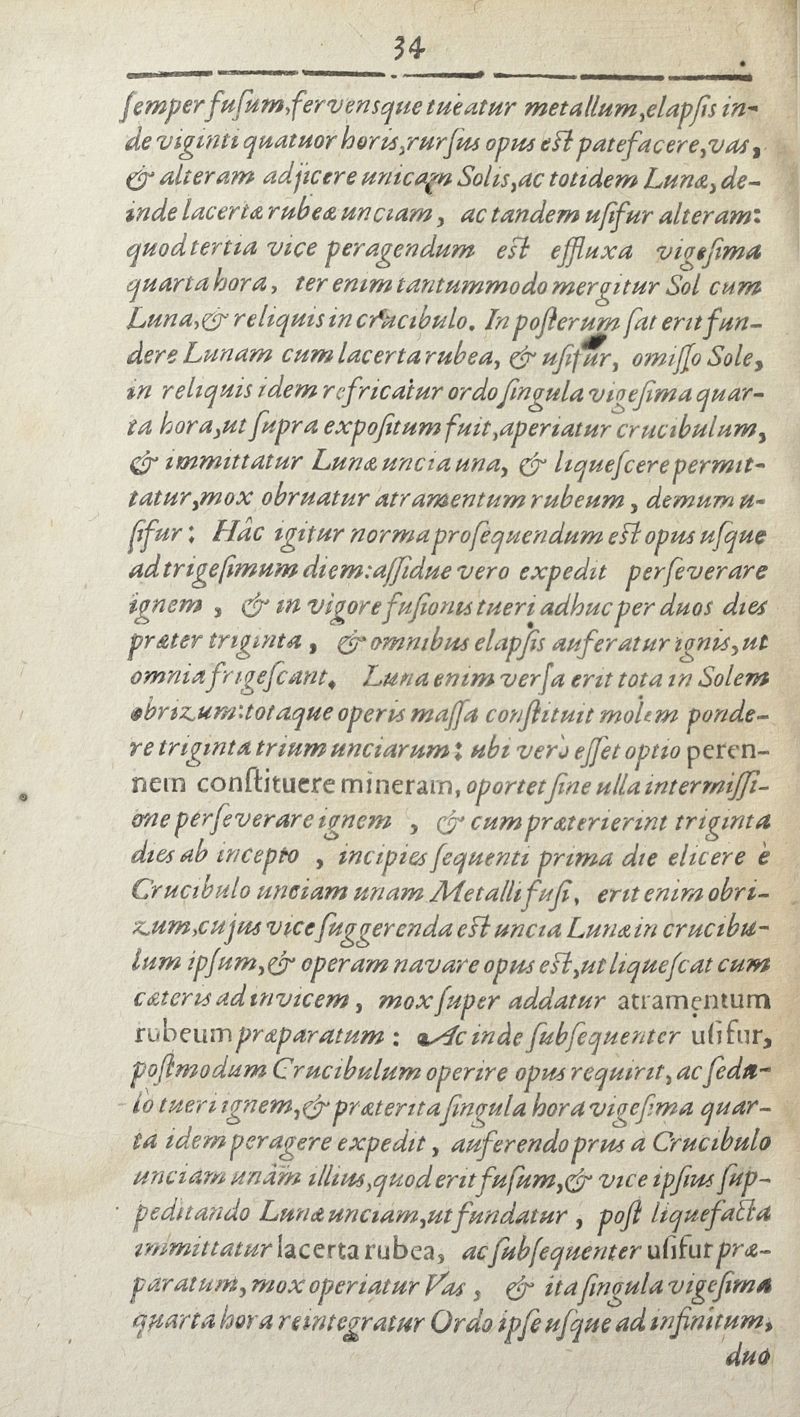 34
ſemper fuſum, fervensque tueatur metallum, elapſis in-
de viginti quatuor horis, rurſus opus eſt patefacere, vas,
& alteram adjicere unicam Solis, ac totidem Lunæ, de-
inde lacertæ rubeæ unciam, ac tandem uſifur alteram:
quod tertia vice peragendum eſt effluxa vigeſima
quarta hora, ter enim tantummodo mergitur Sol cum
Luna, & reliquis in crucibulo. In poſterum ſat erit fun-
dere Lunam cum lacerta rubea, & uſifur, omiſſo Sole,
in reliquis idem refricatur ordo ſingula vigeſima quar-
ta hora, ut ſupra expoſitum fuit, aperiatur crucibulum,
& immittatur Lunæ uncia una, & liqueſcere permit-
tatur, mox obruatur atramentum rubeum, demum u-
ſifur: Hâc igitur norma proſequendum eſt opus uſque
ad trigeſimum diem: aſſidue vero expedit perſeverare
ignem, & in vigore fuſionis tueri adhuc per duos dies
præter triginta, & omnibus elapſis auferatur ignis, ut
omnia frigeſcant. Luna enim verſa erit tota in Solem
obrizum: totaque operis maſſa conſtituit molem ponde-
re triginta trium unciarum: ubi verò eſſet optio peren-
nem conſtituere mineram, oportet ſine ulla intermiſſi-
one perſeverare ignem, & cum præterierint triginta
dies ab incepto, incipies ſequenti prima die elicere è
Crucibulo unciam unam Metalli fuſi, erit enim obri-
zum, cujus vice ſuggerenda eſt uncia Lunæ in crucibu-
lum ipſum, & operam navare opus eſt, ut liqueſcat cum
cæteris ad invicem, mox ſuper addatur atramentum
rubeum præparatum: Ac inde ſubſequenter uſifur,
poſtmodum Crucibulum operire opus requirit, ac ſedu-
lò tueri ignem, & præterita ſingula hora vigeſima quar-
ta idem peragere expedit, auferendo prius a Crucibulo
unciam unam illius, quod erit fuſum, & vice ipſius ſup-
peditando Lunæ unciam, ut fundatur, poſt liquefacta
immittatur lacerta rubea, ac ſubſequenter uſifur præ-
paratum, mox operiatur Vas, & ita ſingula vigeſima
quarta hora reintegratur Ordo ipſe uſque ad infinitum,
duo